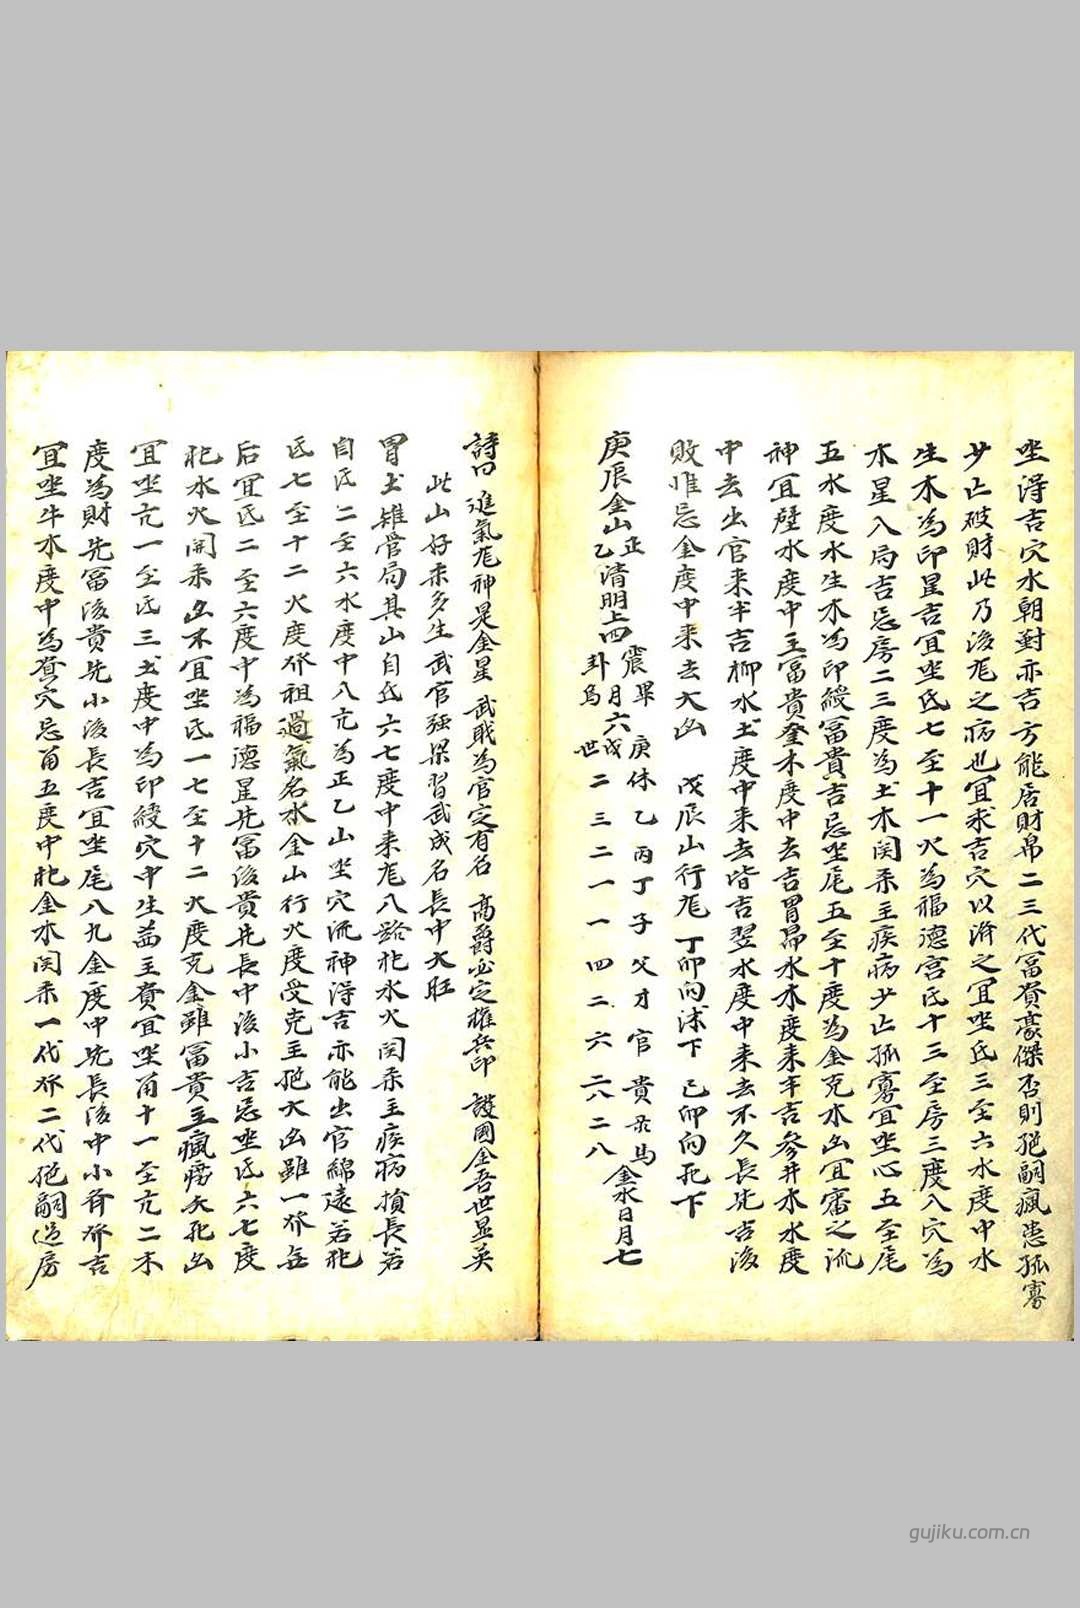 坐淂吉穴水朝對亦吉方能居財帛二三代冨貴豪傑否則絕嗣瘋患孤寡
少亡破財此乃後龙之病也宜求吉穴以濟之宜坐氐三至六水度中水
生木為印星吉宜坐氐七至十一火為福德宫氐十三至房三度入穴為
木星入局吉忌房二三度為土木関系主疾病少亡孤寡宜坐心五至尾
五水度水生木為印綬冨貴吉忌坐尾五至十度為金克木凶宜審之流
神宜壁水度中主冨貴奎木度中去吉胃昴水木度来半吉参井木水度
中去出官来半吉柳水土度中来去皆吉翌水度中来去不久長先吉後
敗惟忌金度中来去大凶 戊辰山行龙 丁卯向沫下 己卯向死下
庚辰金山正乙清明上四 震果 庚休乙丙丁子父才官貴彔馬
卦月六戌二三二一一四二六六八二八 金水日月七
詩曰進氣龙神是金星 武戝為官定有名 高爵必定權兵印 護國金吾世显英
此山好来多生武官强梁習武成名長中大旺
胃土雉管局其山自氐六七度中来龙八路犯水火関系主疾病損長若
自氐二至六水度中八亢為正乙山坐穴流神淂吉亦能出官綿遠若犯
氐七至十二火度发祖過氣名水金山行火度受克主絕大凶雖一发無
后宜氐二至六度中為福德星先冨後貴先長中後小吉忌坐氐六七度
犯水火関系凶不宜坐氐一七至十二火度克金雖冨貴主瘋痨夭死凶
宜坐亢一至氐三土度中為印綬穴中生葢主貴宜坐角十一至亢二木
度為財先冨後貴先小後長吉宜坐尾八九金度中先長後中小斉发吉
宜坐牛木度中為貴穴忌角五度中犯金木関系一代发二代絕嗣過房
gujiku.com.cn